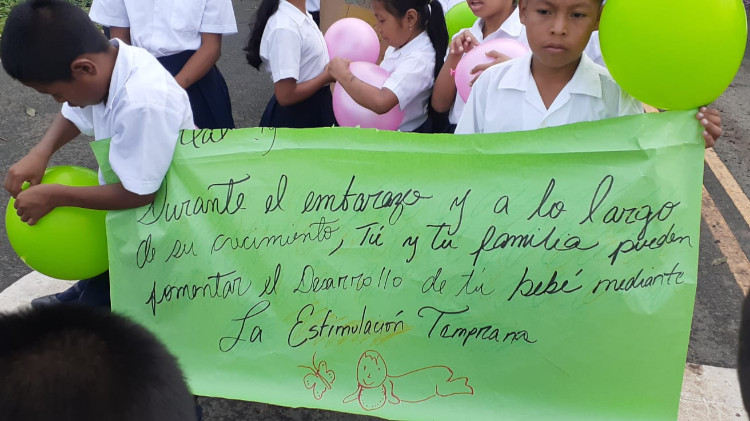 Durante el embarazo y a lo largo
de su crecimiento, Tú y tu familia pueden
fomentar el Desarrollo de tú bebé mediante
La Estimulación Temprana